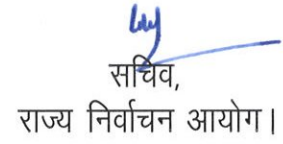 सचिव,
राज्य निर्वाचन आयोग।